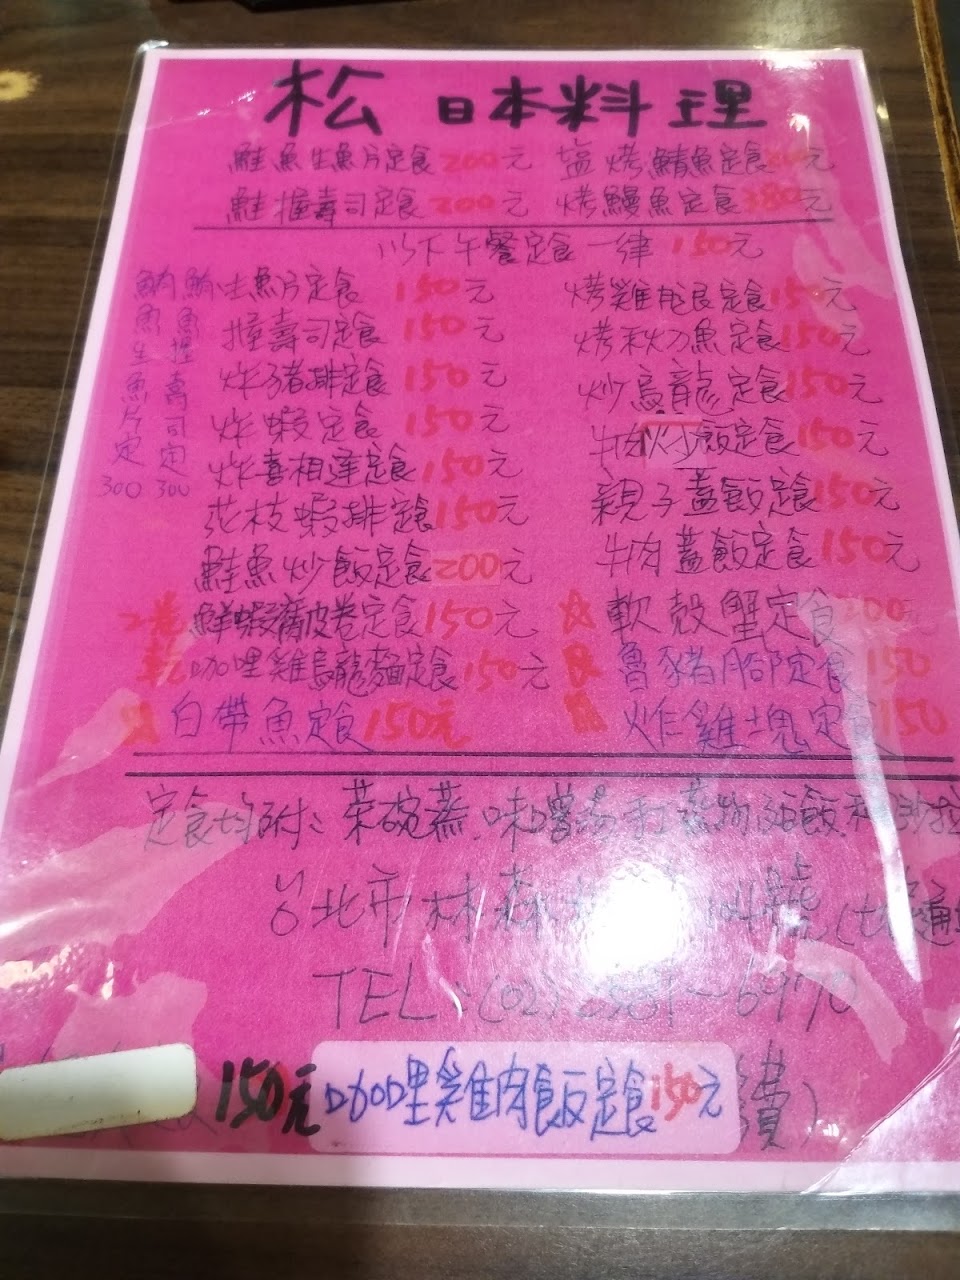 松 日本料理
鮭魚生魚片定食200元 塩烤鯖魚定食 元
鮭握壽司定食200元 烤鰻魚定食380元
以下午餐定食一律150元
鮪魚生魚片定 300
鮪魚握壽司定 300
生魚片定食 150元 烤雞腿定食150元
握壽司定食 150元 烤秋刀魚定食150元
炸豬排定食 150元 炒烏龍定食150元
炸蝦定食 150元 牛肉炒飯定食150元
炸喜相逢定食150元 親子蓋飯定食150元
花枝蝦排定食150元 牛肉蓋飯定食150元
鮭魚炒飯定食200元 軟殼蟹定食 00元
鮮蝦腐皮卷定食150元 魯豬腳定食150
咖哩雞烏龍麵定食150元 炸雞塊定食150
白帶魚定食150元
定食均附：茶碗蒸.味噌湯 蒸物 飯
台北市林森
TEL：(02)2 6970
150元 咖哩雞肉飯定食150元
費)